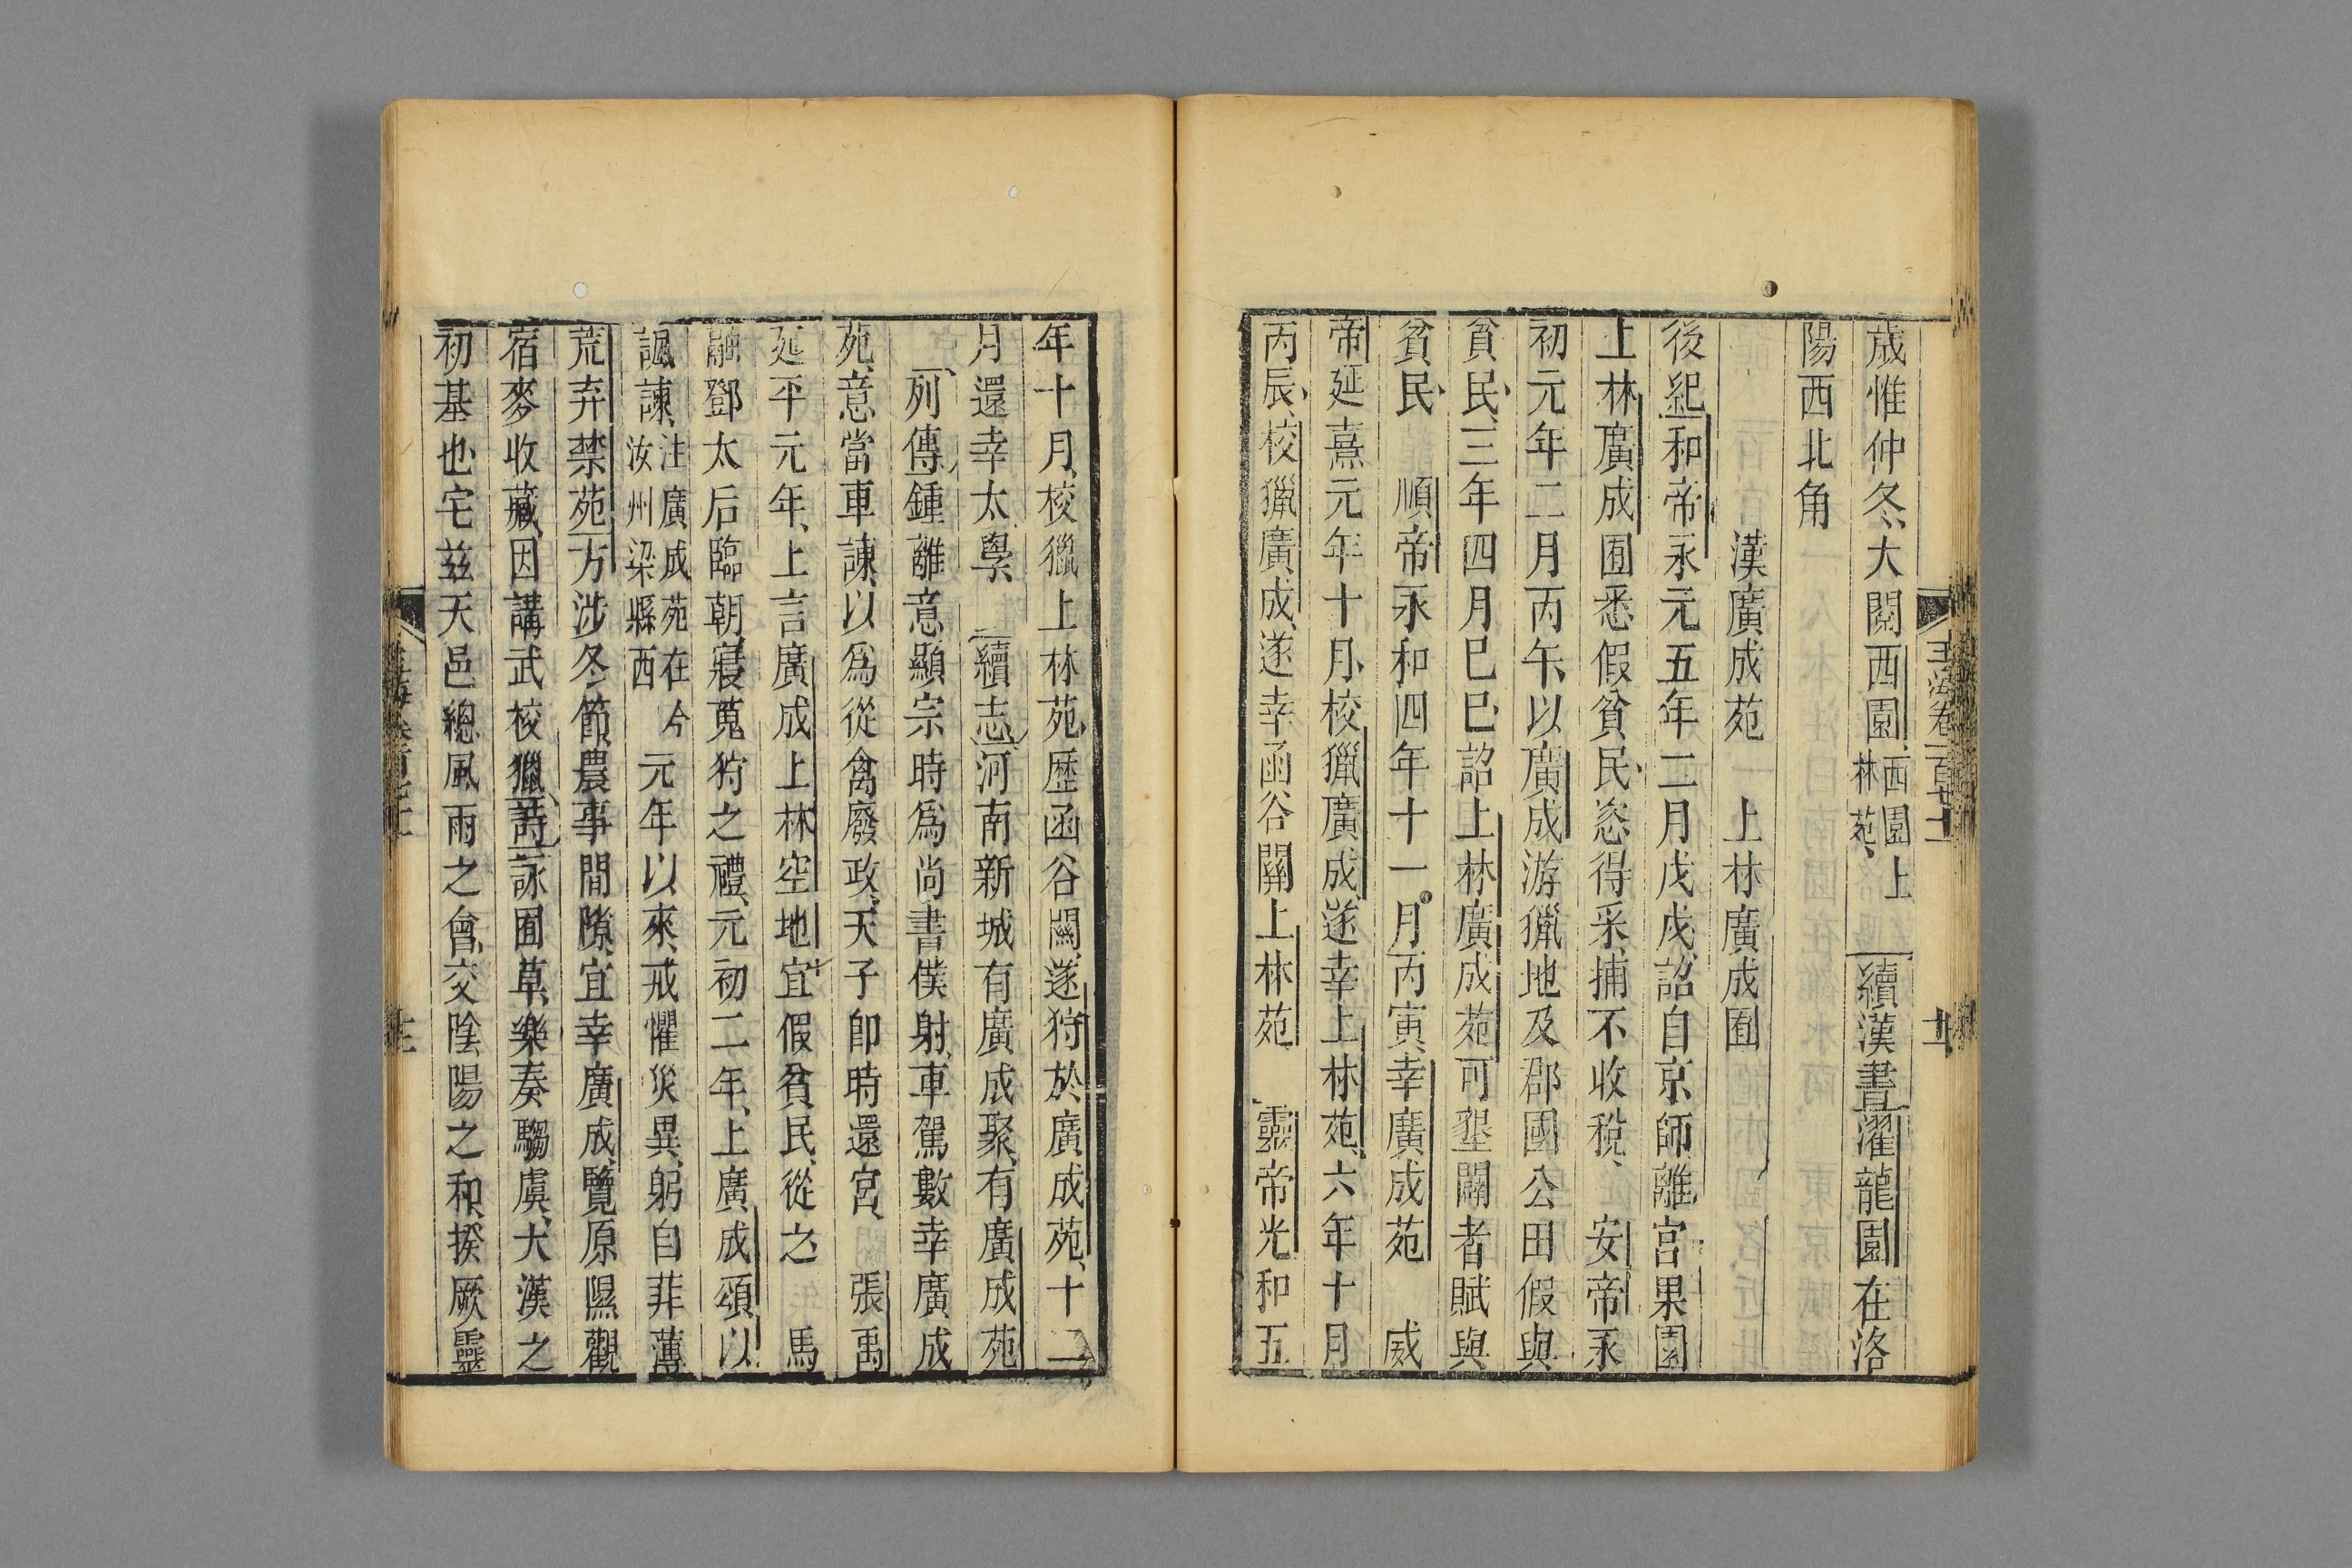 歲惟仲冬大閱西園西園上林苑 續漢書濯龍園在洛
陽西北角
漢廣成苑 上林廣成囿
後紀和帝永元五年二月戊戌詔自京師離宮果園
上林廣成囿悉假貧民恣得采捕不收稅 安帝永
初元年二月丙午以廣成游獵地及郡國公田假與
貧民三年四月巳巳詔上林廣成苑可墾闢者賦與
貧民 順帝永和四年十一月丙寅幸廣成苑 威
帝延熹元年十月校獵廣成遂幸上林苑六年十月
丙辰校獵廣成遂幸函谷關上林苑 靈帝光和五
年十月校獵上林苑歷函谷關遂狩於廣成苑十二
月還幸太學 續志河南新城有廣成聚有廣成苑
列傳鍾離意顯宗時爲尚書僕射車駕數幸廣成
苑意當車諫以爲從禽廢政天子卽時還宮 張禹
延平元年上言廣成上林空地宜假貧民從之 馬
融鄧太后臨朝寢蒐狩之禮元初二年上廣成頌以
諷諫注廣成苑在今汝州梁縣西元年以來戒懼災異躬自菲薄
荒弃禁苑方涉冬節農事閒隙宜幸廣成覽原隰觀
宿麥收藏因講武校獵詩詠囿草樂奏騶虞大漢之
初基也宅茲天邑總風雨之會交陰陽之和揆厥靈
玉海卷一百七十一